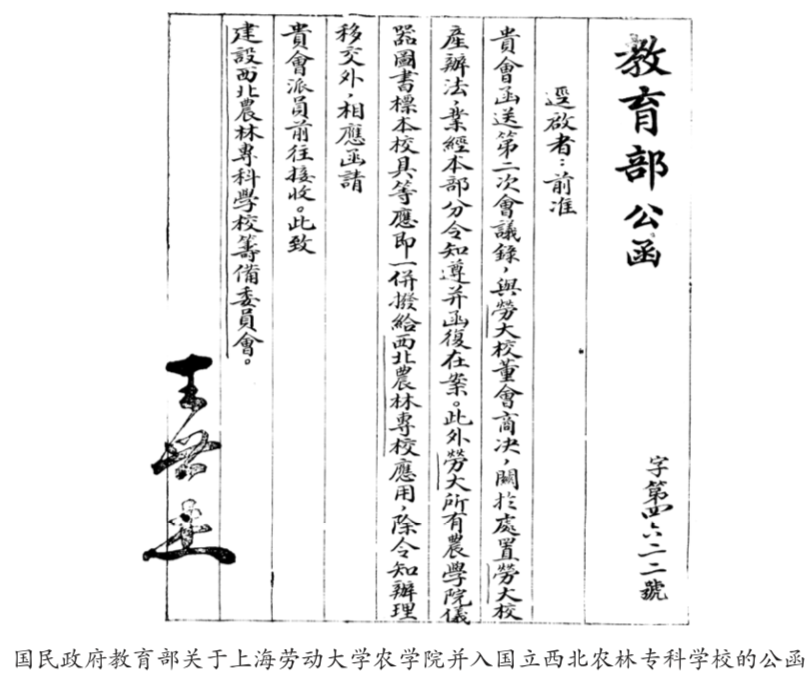 教育部公函
字第四六二二號
逕啟者：前准
貴會函送第二次會議錄，與勞大校董會商決，關於處置勞大校
產辦法，業經本部分令知遵并函復在案。此外勞大所有農學院儀
器圖書標本校具等應即一併撥給西北農林專校應用，除令知辦理
移交外，相應函請
貴會派員前往接收。此致
建設西北農林專科學校籌備委員會。
王世杰
国民政府教育部关于上海劳动大学农学院并入国立西北农林专科学校的公函